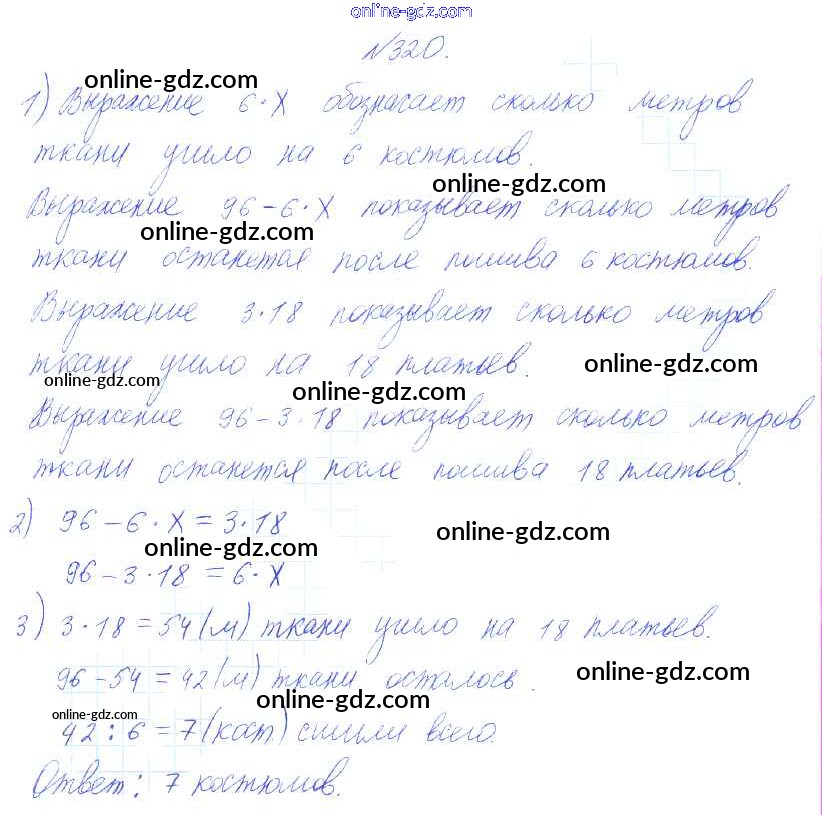 online-gdz.com
№320.
online-gdz.com
1) Выражение 6·X обозначает сколько метров
ткани ушло на 6 костюмов.
online-gdz.com
Выражение 96-6·X показывает сколько метров
online-gdz.com
ткани останется после пошива 6 костюмов.
Выражение 3·18 показывает сколько метров
ткани ушло на 18 платьев.
online-gdz.com
online-gdz.com
online-gdz.com
Выражение 96-3·18 показывает сколько метров
ткани останется после пошива 18 платьев.
2) 96-6·X=3·18
online-gdz.com
online-gdz.com
96-3·18=6·X
3) 3·18=54(м) ткани ушло на 18 платьев.
96-54=42(м) ткани осталось.
online-gdz.com
online-gdz.com
online-gdz.com
42:6=7(кост.) сшили всего.
Ответ: 7 костюмов.